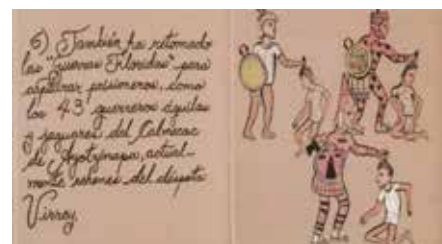 6) También ha retomado
las "guerras Floridas" para
capturar prisioneros, como
los 43 guerreros águilas
y jaguares del Calmécac
de Ayotzinapa, actual-
mente rehenes del déspota
Virrey.